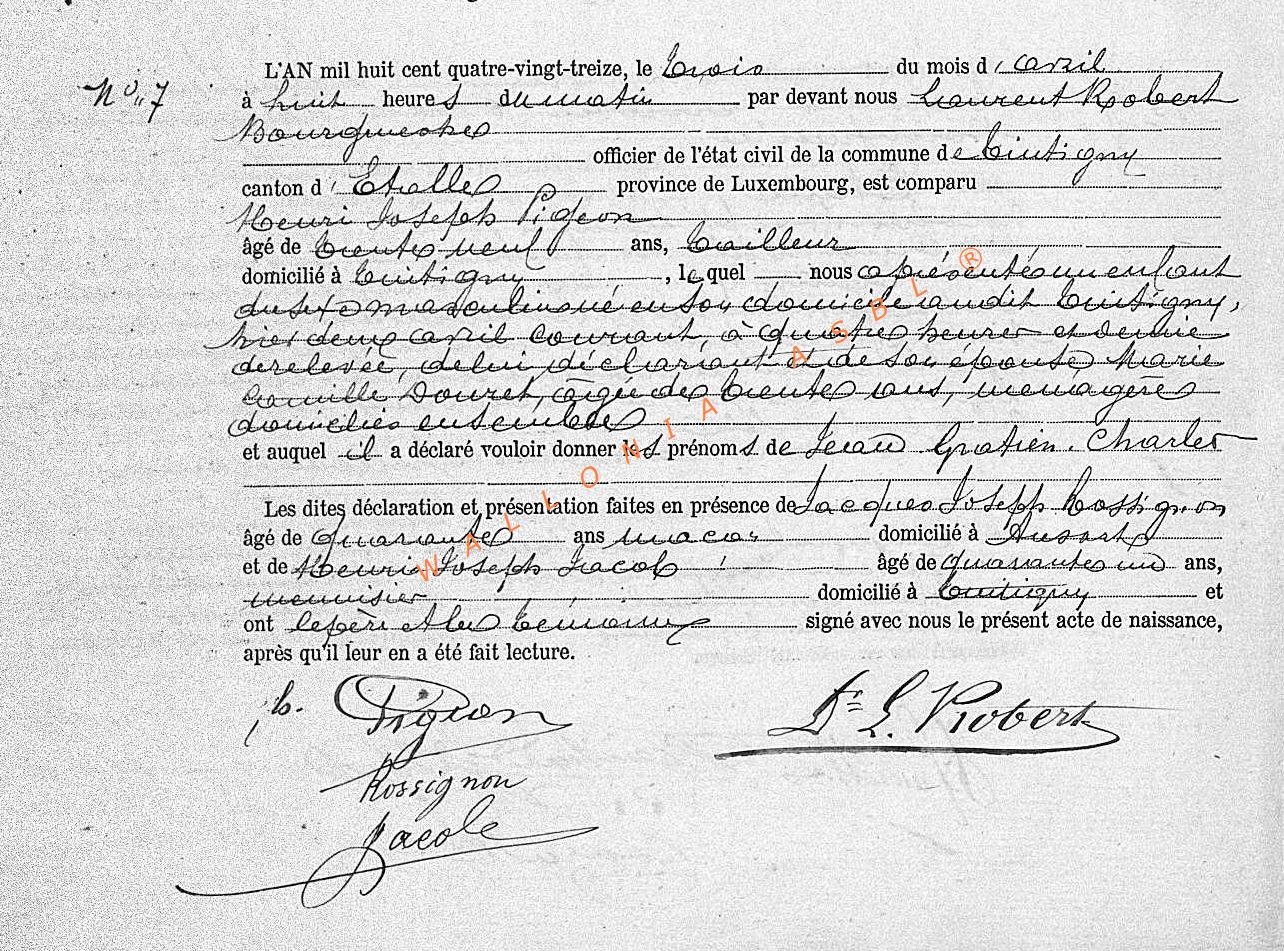 N° 7
L'AN mil huit cent quatre-vingt-treize, le trois du mois d'avril
à huit heures du matin par devant nous Laurent Robert
Bourgmestre
officier de l'état civil de la commune de Tintigny
canton d'Etalle province de Luxembourg, est comparu
Henri Joseph Pigeon
âgé de trente neuf ans, tailleur
domicilié à Tintigny, lequel nous a présenté un enfant
du sexe masculin né en son domicile audit Tintigny,
hier deux avril courant, à quatre heures et demie
de relevée, de lui déclarant et de son épouse Marie
Camille Douret, âgée de trente ans, menagère
domiciliés ensemble
et auquel il a déclaré vouloir donner les prénoms de Jean Gratien Charles
Les dites déclaration et présentation faites en présence de Jacques Joseph Rossignon
âgé de quarante ans domicilié à Ansart
et de Henri Joseph Jacob âgé de quarante un ans,
menuisier domicilié à Tintigny et
ont le père et les témoins signé avec nous le présent acte de naissance,
après qu'il leur en a été fait lecture.
Pigeon
Dr L. Robert
Rossignon
Jacob
WALLONIA ASBL ®